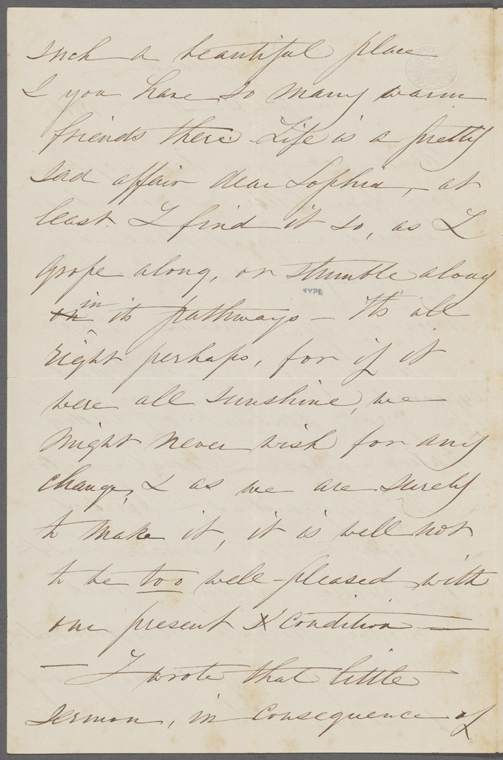 such a beautiful place
& you have so many warm
friends there. Life is a pretty
sad affair dear Sophia, at
least I find it so, as I
grope along, or stumble along
on in its pathways – It's all
right perhaps, for if it
were all sunshine, we
might never wish for any
change, & as we are surely
to make it, it is well not
to be too well-pleased with
our present condition —
— I wrote that little
sermon, in consequence of